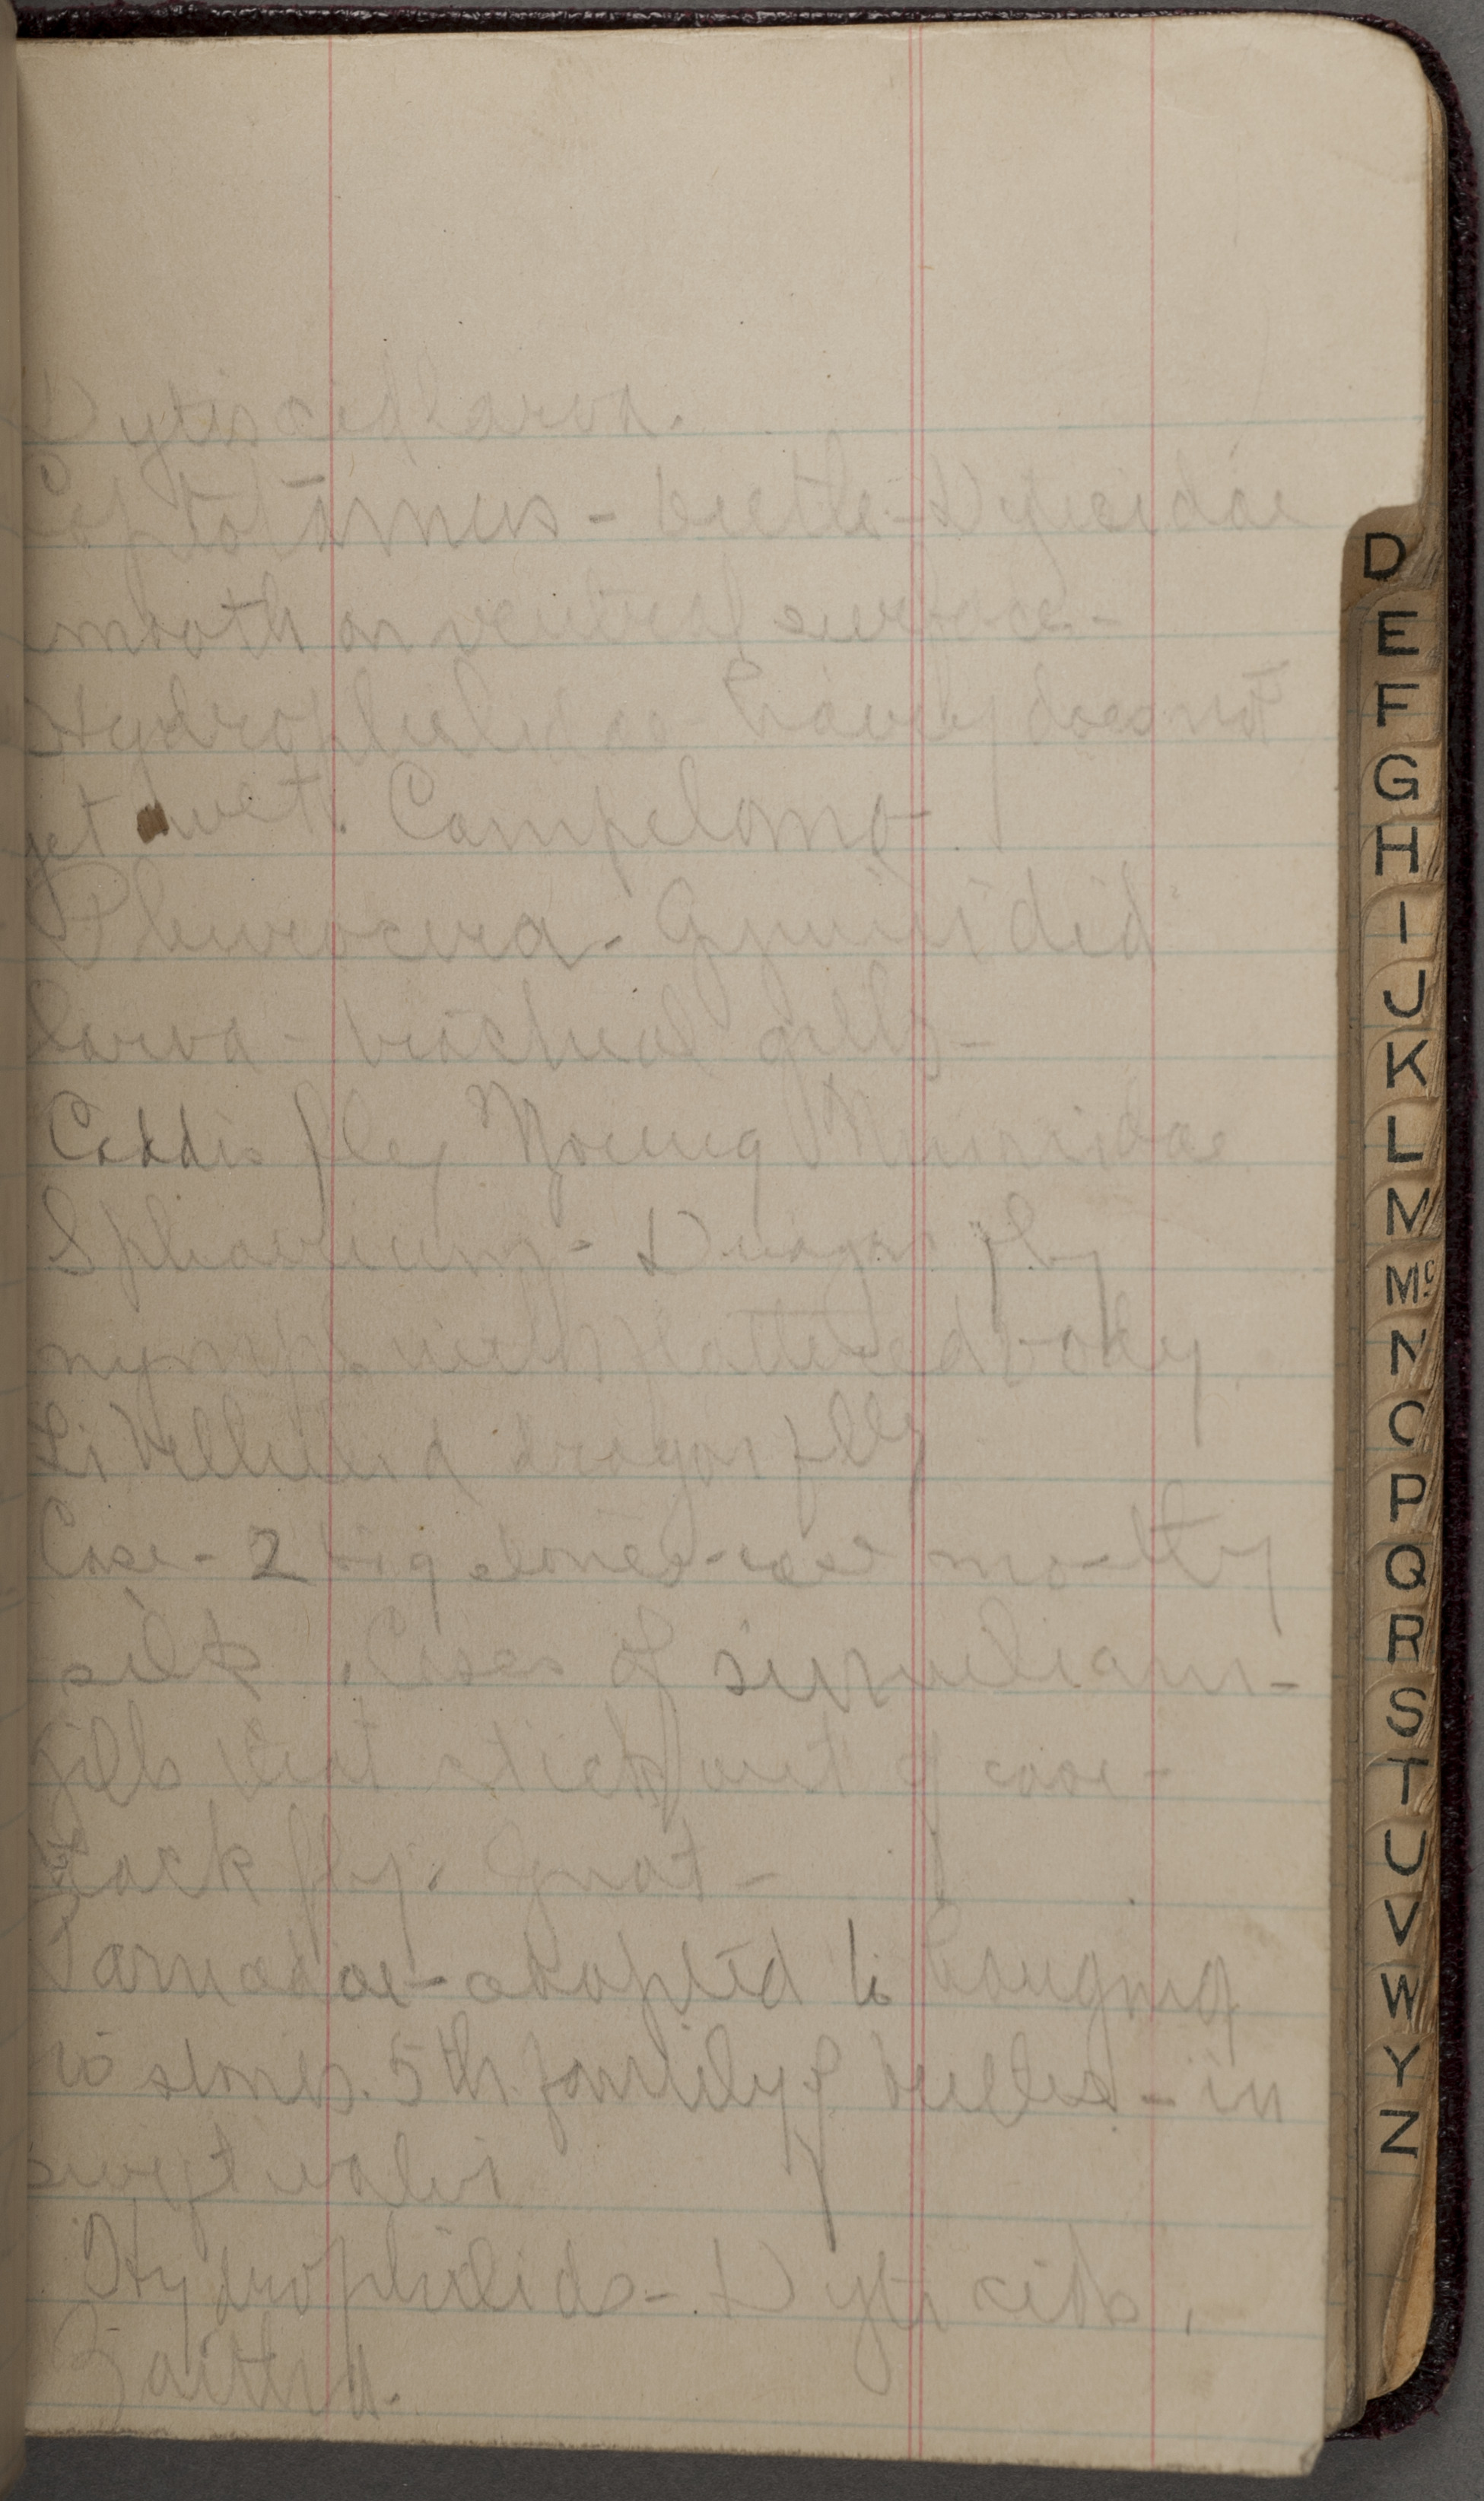 Dytiscid larva.
Coptotomus - beetle - Dyticidae
smooth on ventral surface -
Hydrophilidae hairy does not
get wet. Campeloma
Pleurocera - Gyrinidid
larva - tracheal gills -
Caddis fley Young
Sphaerium - Dragon fly
nymph with flattened body.
Libellulid dragon flly
Case - 2 big stones - case mostly
silk. Cases of simulium -
gills that stick out of case -
Black fly. Gnat -
Parnidae - adapted to hanging
to stones. 5th family of beetles - in
swift water
Hydrophilids - Dyticids,
Zaitha.
D
E
F
G
H
I
J
K
L
M
Mc
N
O
P
Q
R
S
T
U
V
W
Y
Z